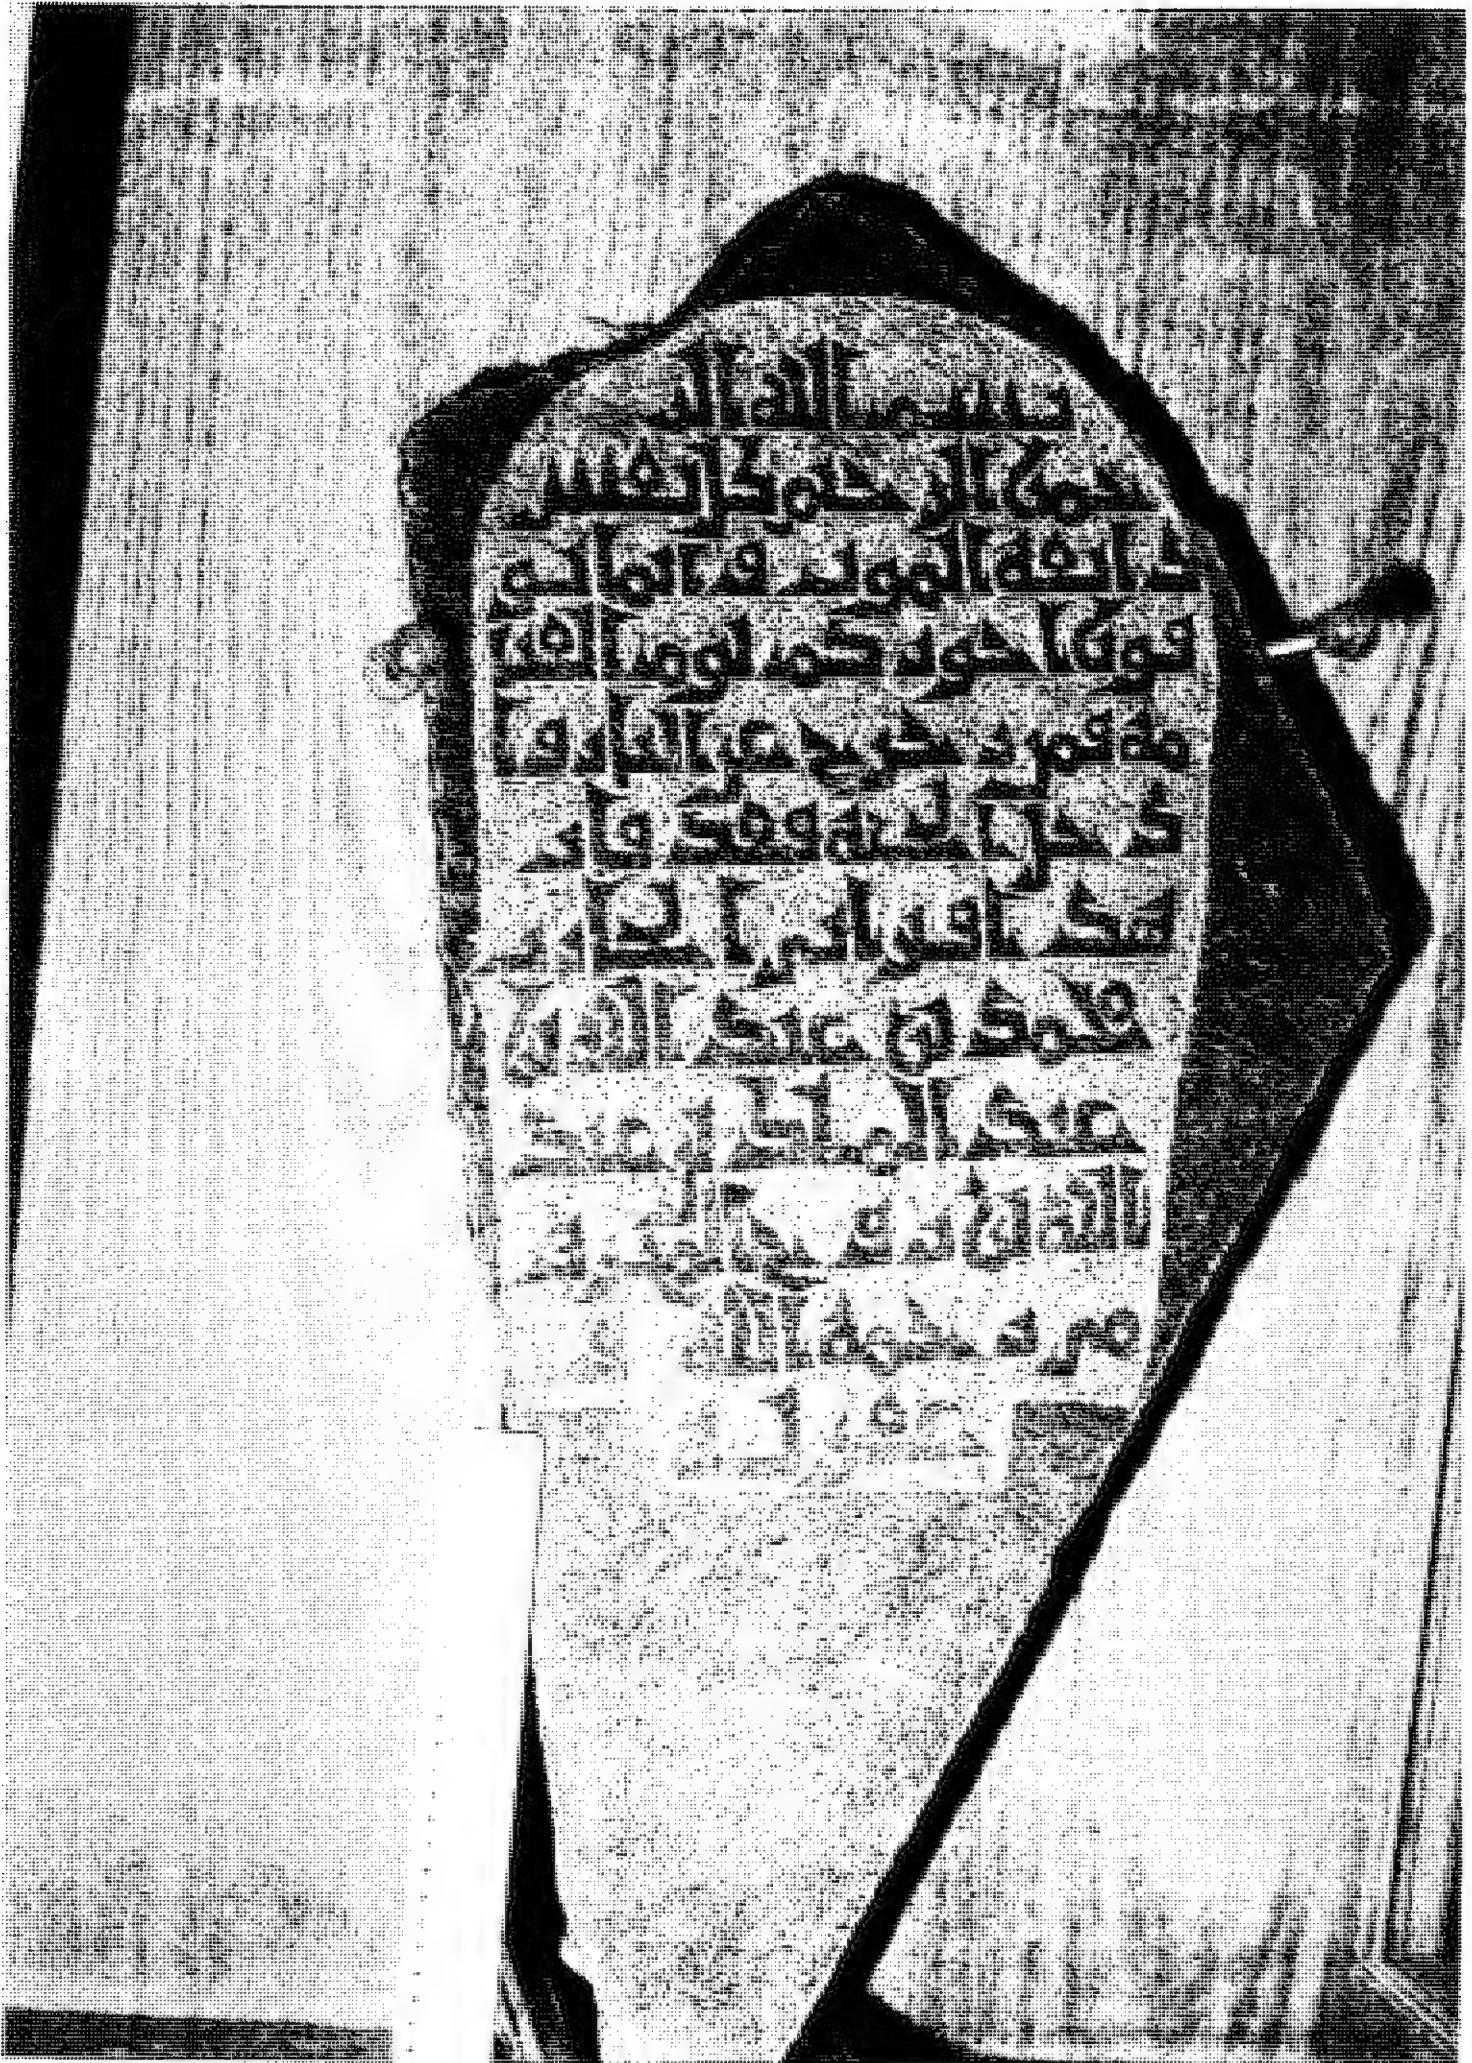 بسم الله الر
حمن الرحيم كل نفس
ذائقة الموت وانما تو
فون اجوركم يوم القيا
مة فمن زحزح عن النار وا
دخل الجنة فقد فاز
هذا قبر
محمد بن عبد الله بن
عبد الواحد بن عبد
الله بن
من حجة